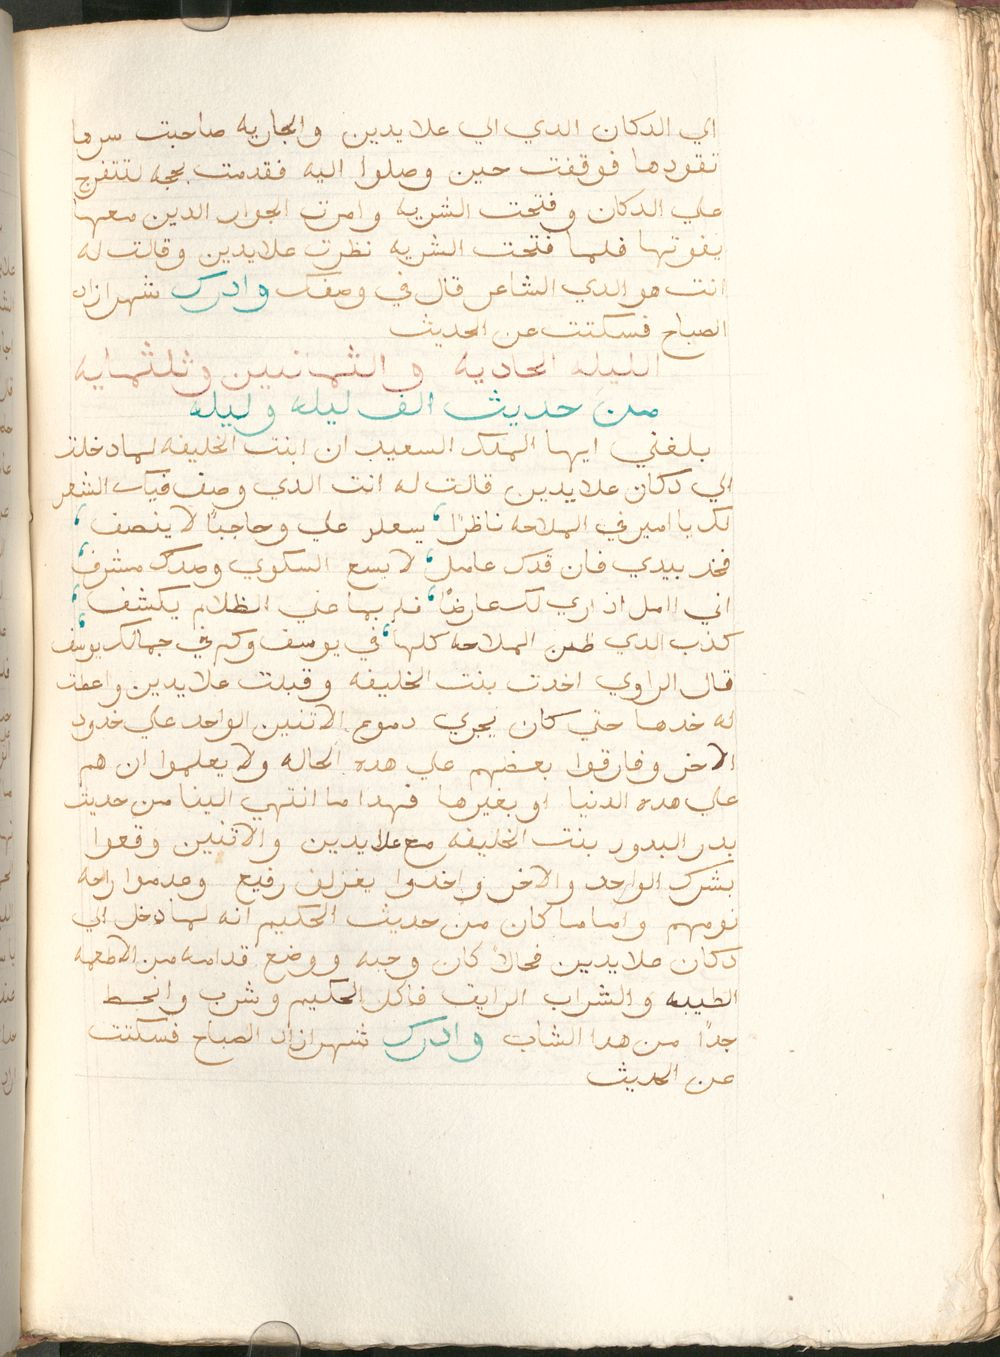 الي الدكان الدي الي علايدين والجاريه صاحبت سرها
تقودها فوقفت حين وصلوا اليه فقدمت بحجه لتتفرج
علي الدكان وفتحت الشريه وامرت الجوار الدين معها
يفوتها فلما فتحت الشريه نظرت علايدين وقالت له
انت هو الدي الشاعر قال في وصفك وادرك شهرازاد
الصباح فسكتت عن الحديث
الليله الحاديه والثمانين وثلثمايه
من حديث الف ليله وليله
بلغني ايها الملك السعيد ان ابنت الخليفه لما دخلت
الي دكان علايدين قالت له انت الدي وصف فيك الشعر
لك يا امير في الملاحه ناظرًا، يسعلر علي وحاجبًا لا ينصف،
فخد بيدي فان قدك عامل، لا يسع السكوي وصدك مشرف،
اني اامل ان اري لك عارضًا، فلربما عني الظلام يكشف،
كذب الدي ظن الملاحه كلها، في يوسف وكم في جمالك يوسف،
قال الراوي اخدت بنت الخليفه وقبلت علايدين واعطت
له خدها حتي كان يجري دموع الاتنين الواحد علي خدود
الاخر وفارقوا بعضهم علي هده الحاله ولا يعلموا ان هم
علي هده الدنيا او بغيرها فهدا ما انتهي الينا من حديث
بدر البدور بنت الخليفه مع علايدين والاتنين وقعوا
بشرك الواحد والاخر واخدوا يغزلف رفيع وعدموا راحه
نومهم واما ما كان من حديث الحكيم انه لما دخل الي
دكان علايدين فحالاً كان وجبه ووضع قدامه من الاطعمه
الطيبه والشراب الرايق فاكل الحكيم وشرب وانحط
جدًا من هدا الشاب وادرك شهرازاد الصباح فسكتت
عن الحديث